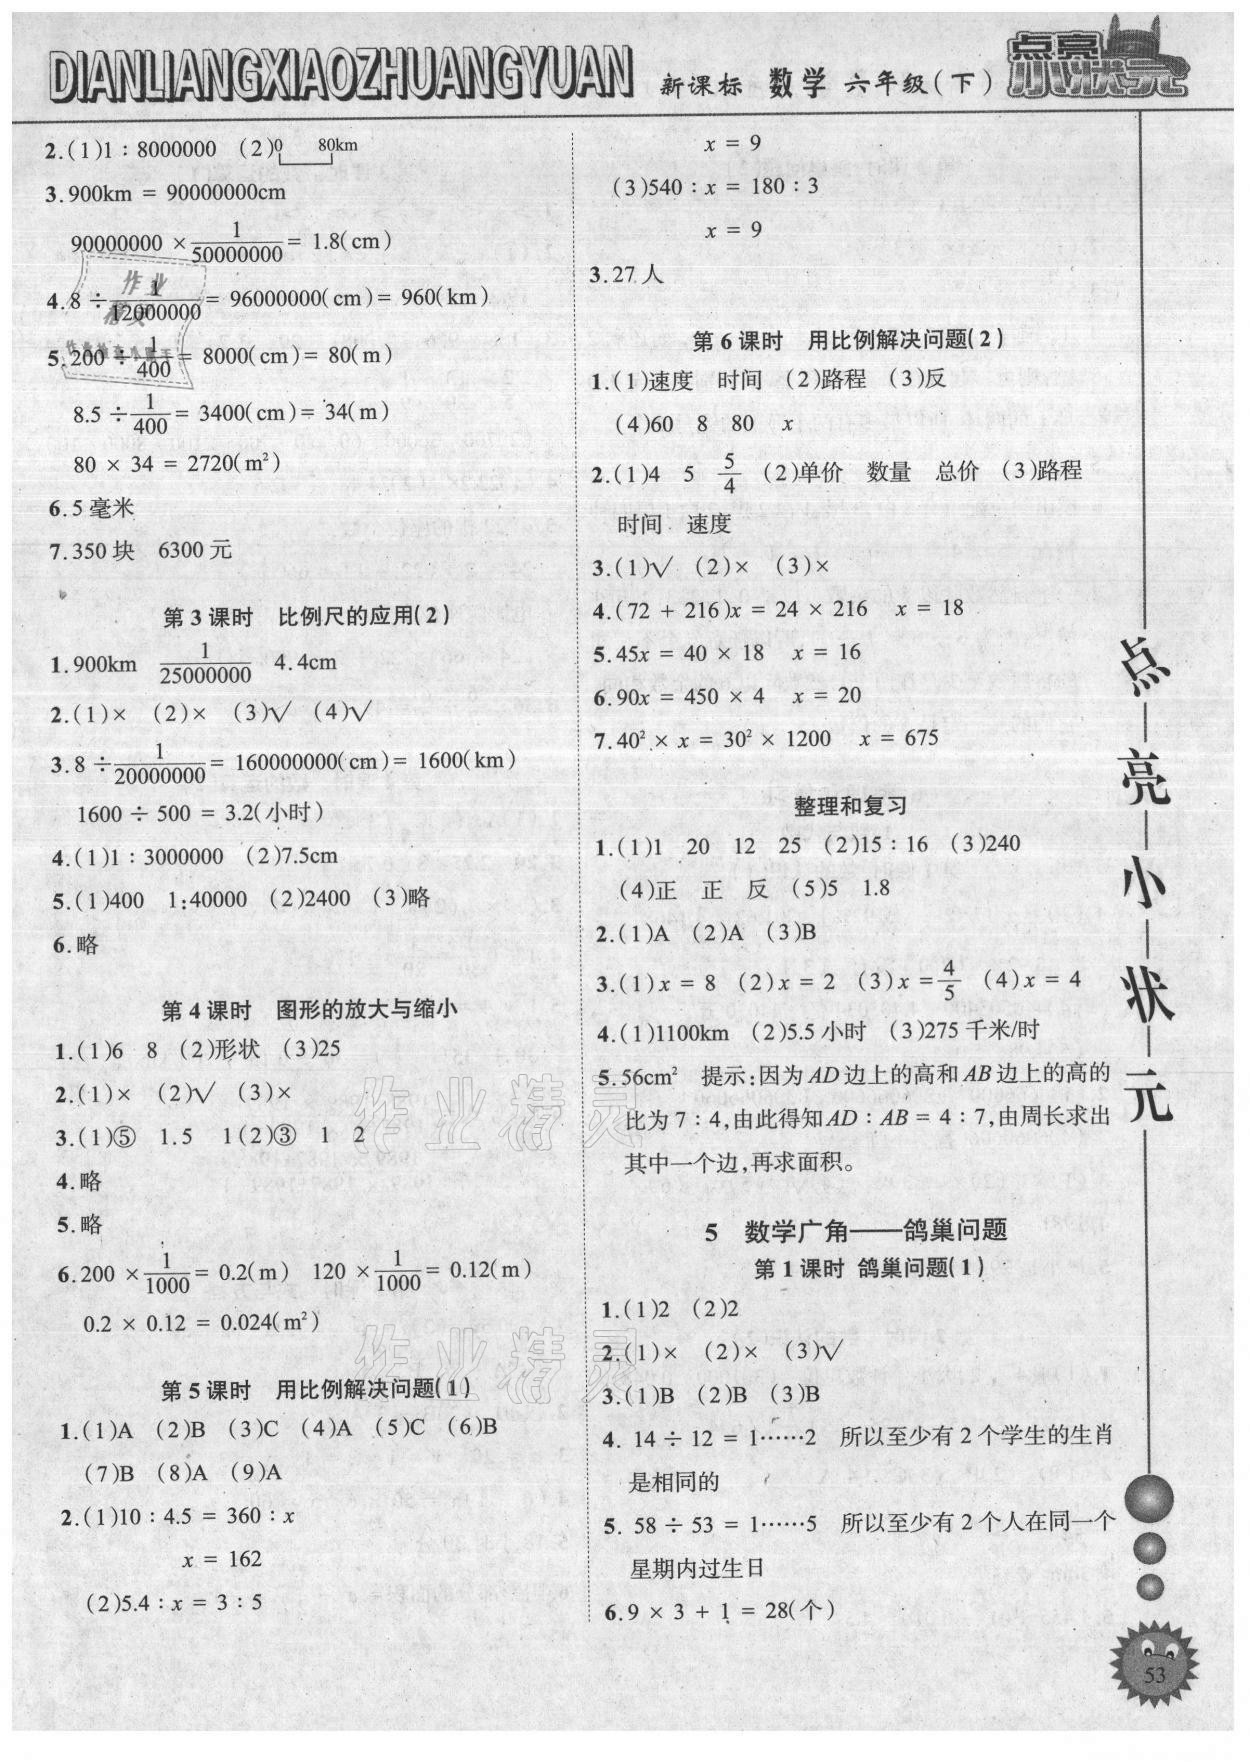 DIANLIANGXIAOZHUANGYUAN 新课标 数学 六年级(下) 点亮小状元
2.(1)1∶8000000 (2)0 80km
3.900km = 90000000cm
90000000 × 1/50000000 = 1.8(cm)
4.8 ÷ 1/12000000 = 96000000(cm)= 960(km)
5.200 ÷ 1/400 = 8000(cm)= 80(m)
8.5 ÷ 1/400 = 3400(cm)= 34(m)
80 × 34 = 2720(m²)
6.5 毫米
7.350 块 6300 元
第 3 课时 比例尺的应用(2)
1.900km 1/25000000 4.4cm
2.(1)× (2)× (3)√ (4)√
3.8 ÷ 1/20000000 = 160000000(cm)= 1600(km)
1600 ÷ 500 = 3.2(小时)
4.(1)1∶3000000 (2)7.5cm
5.(1)400 1:40000 (2)2400 (3)略
6.略
第 4 课时 图形的放大与缩小
1.(1)6 8 (2)形状 (3)25
2.(1)× (2)√ (3)×
3.(1)⑤ 1.5 1(2)③ 1 2
4.略
5.略
6.200 × 1/1000 = 0.2(m) 120 × 1/1000 = 0.12(m)
0.2 × 0.12 = 0.024(m²)
第 5 课时 用比例解决问题(1)
1.(1)A (2)B (3)C (4)A (5)C (6)B
(7)B (8)A (9)A
2.(1)10∶4.5 = 360∶x
x = 162
(2)5.4∶x = 3∶5
x = 9
(3)540∶x = 180∶3
x = 9
3.27 人
第 6 课时 用比例解决问题(2)
1.(1)速度 时间 (2)路程 (3)反
(4)60 8 80 x
2.(1)4 5 5/4 (2)单价 数量 总价 (3)路程
时间 速度
3.(1)√ (2)× (3)×
4.(72 + 216)x = 24 × 216 x = 18
5.45x = 40 × 18 x = 16
6.90x = 450 × 4 x = 20
7.40² × x = 30² × 1200 x = 675
整理和复习
1.(1)1 20 12 25 (2)15∶16 (3)240
(4)正 正 反 (5)5 1.8
2.(1)A (2)A (3)B
3.(1)x = 8 (2)x = 2 (3)x = 4/5 (4)x = 4
4.(1)1100km (2)5.5 小时 (3)275 千米/时
5.56cm² 提示:因为AD边上的高和AB边上的高的
比为 7∶4,由此得知AD∶AB = 4∶7,由周长求出
其中一个边,再求面积。
5 数学广角——鸽巢问题
第 1 课时 鸽巢问题(1)
1.(1)2 (2)2
2.(1)× (2)× (3)√
3.(1)B (2)B (3)B
4. 14 ÷ 12 = 1……2 所以至少有 2 个学生的生肖
是相同的
5. 58 ÷ 53 = 1……5 所以至少有 2 个人在同一个
星期内过生日
6.9 × 3 + 1 = 28(个)
点亮小状元
53
作业精灵
作业精灵